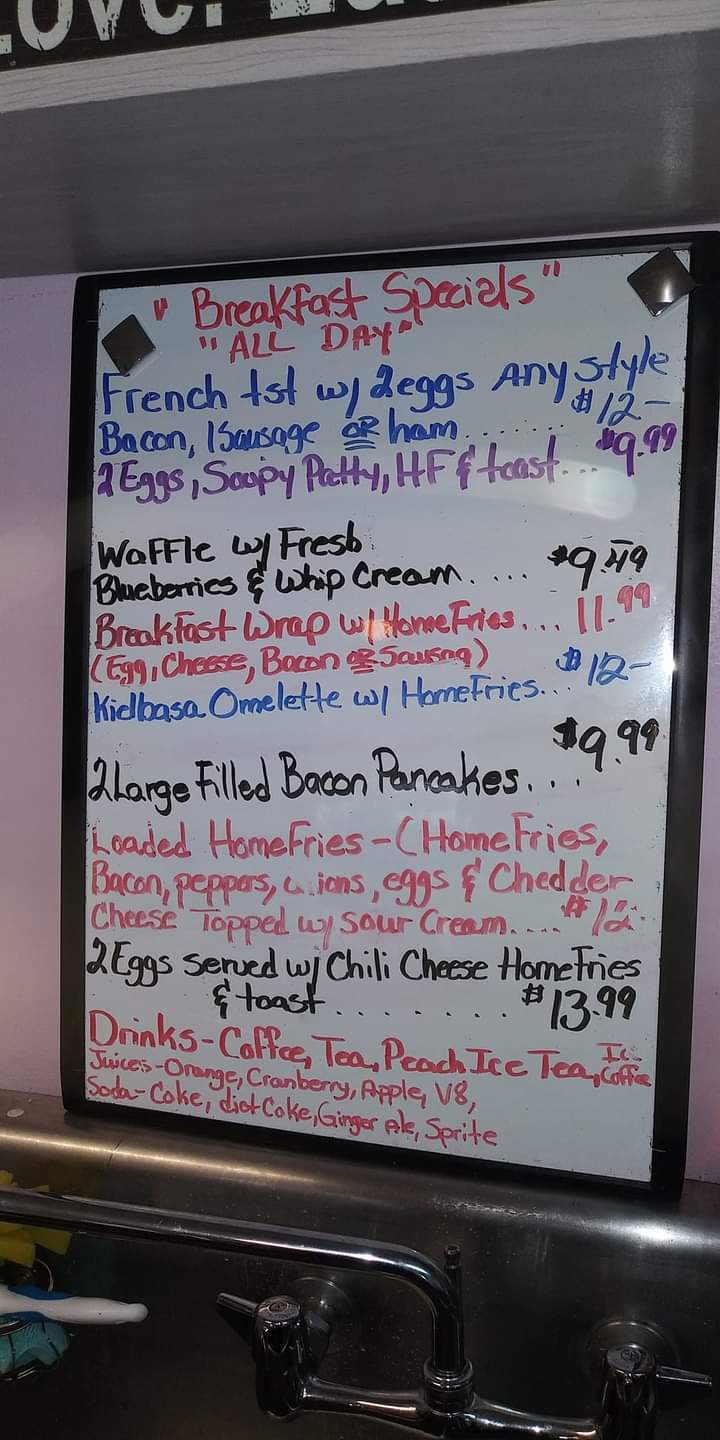 Love.
" Breakfast Specials "
" ALL DAY "
French tst w/ 2eggs Any style
Bacon, 1Sausage OR ham....... $12-
2 Eggs, Soupy Patty, HF & toast... $9.99
Waffle w/ Fresh
Blueberries & Whip Cream..... $9.49
Breakfast Wrap w/ HomeFries... 11.99
(Egg, Cheese, Bacon OR Sausag)
Kielbasa Omelette w/ HomeFries... $12-
2 Large Filled Bacon Pancakes.... $9.99
Loaded HomeFries - (HomeFries,
Bacon, peppers, eggs & Chedder
Cheese Topped w/ Sour Cream.... $12
2 Eggs served w/ Chili Cheese HomeFries
& toast......... $13.99
Drinks - Coffee, Tea, Peach Ice Tea, Ice Coffee
Juices - Orange, Cranberry, Apple, V8,
Soda - Coke, diet Coke, Ginger Ale, Sprite